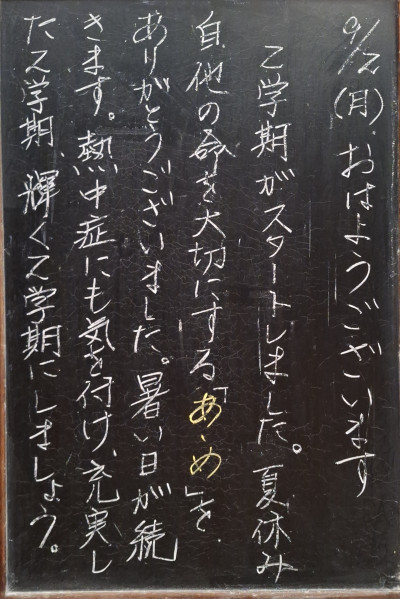 9/2(月).おはようございます
2学期がスタートしました。夏休み
自他の命を大切にする「あ・め」を
ありがとうございました。暑い日が続
きます。熱中症にも気を付け、充実し
た2学期、輝く2学期にしましょう。